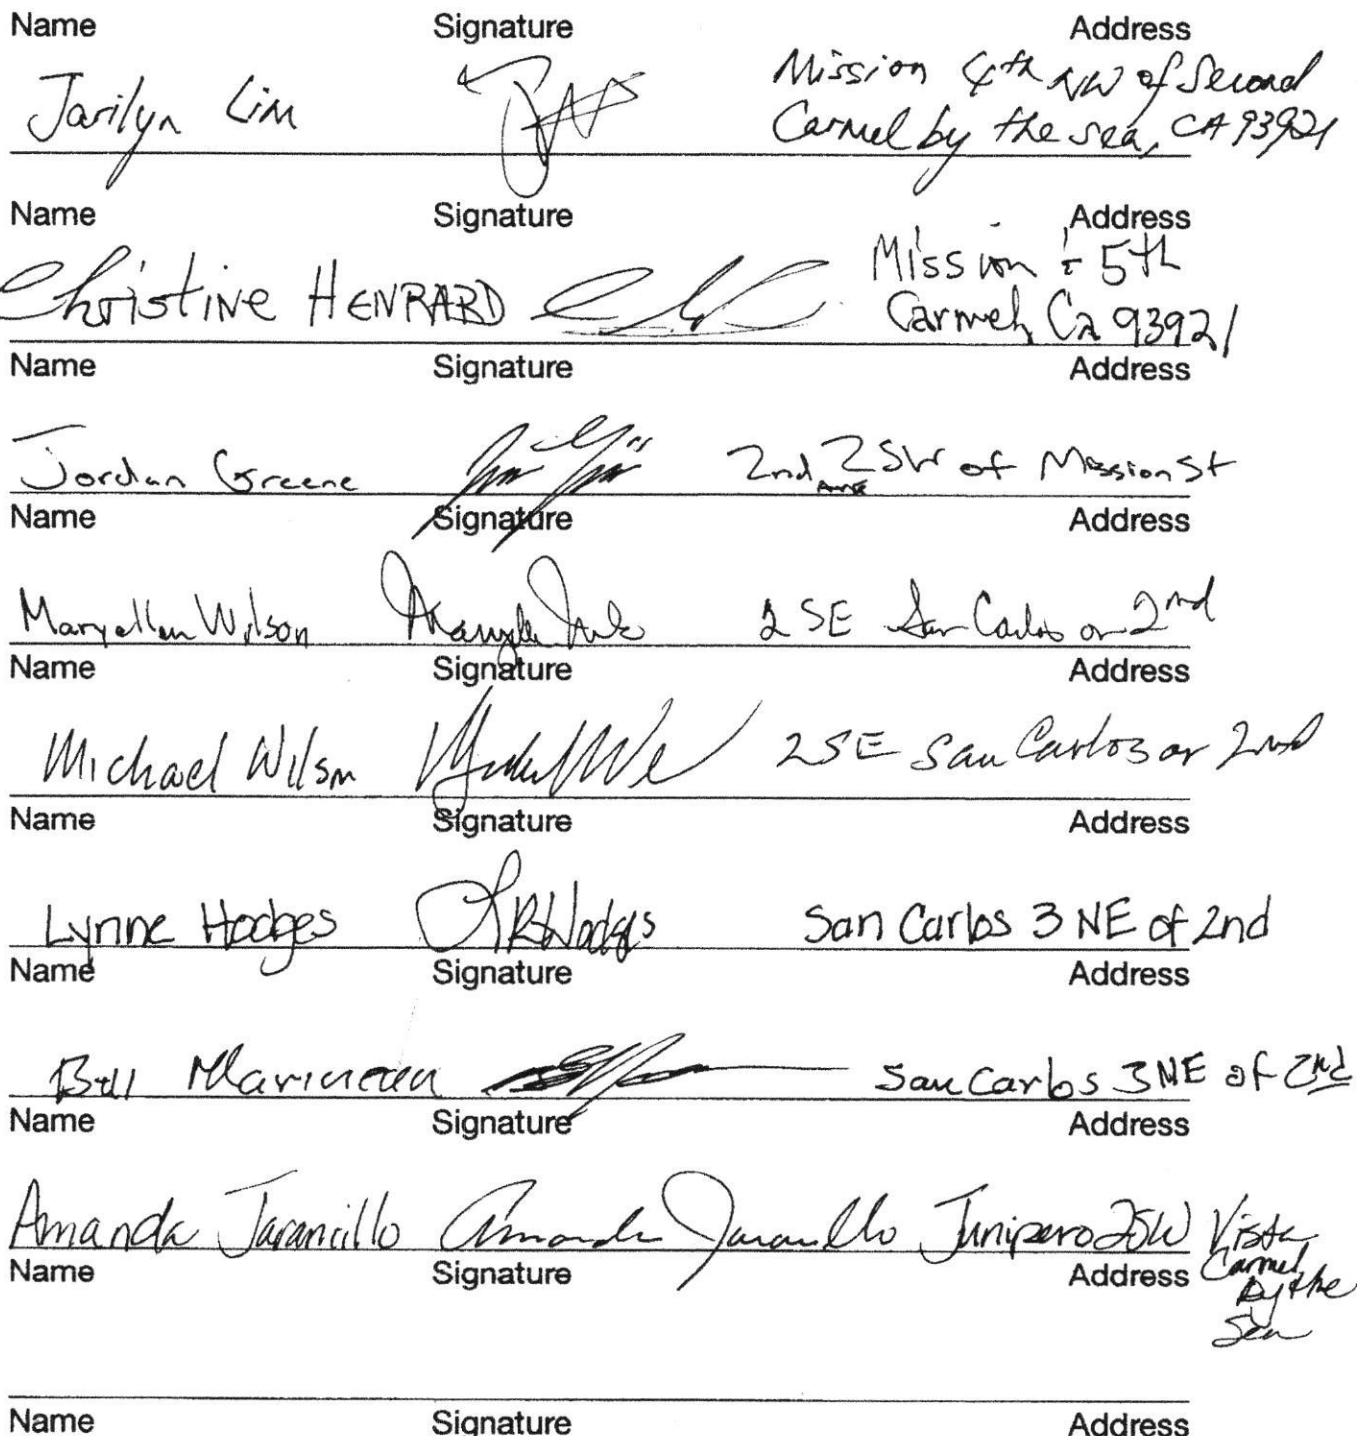 Name Signature Address
Jarilyn Lim Mission 4th NW of Second
Carmel by the sea, CA 93921
Name Signature Address
Christine HENRARD Mission & 5th
Carmel, Ca 93921
Name Signature Address
Jordan Greene 2nd Ave 2SW of Mission St
Name Signature Address
Maryellen Wilson 2 SE San Carlos or 2nd
Name Signature Address
Michael Wilson 2SE San Carlos or 2nd
Name Signature Address
Lynne Hodges LRHodges San Carlos 3 NE of 2nd
Name Signature Address
Bill Marineau San Carlos 3 NE of 2nd
Name Signature Address
Amanda Jaramillo Amanda Jaramillo Junipero 2SW Vista
Carmel
by the
Sea
Name Signature Address
Name Signature Address